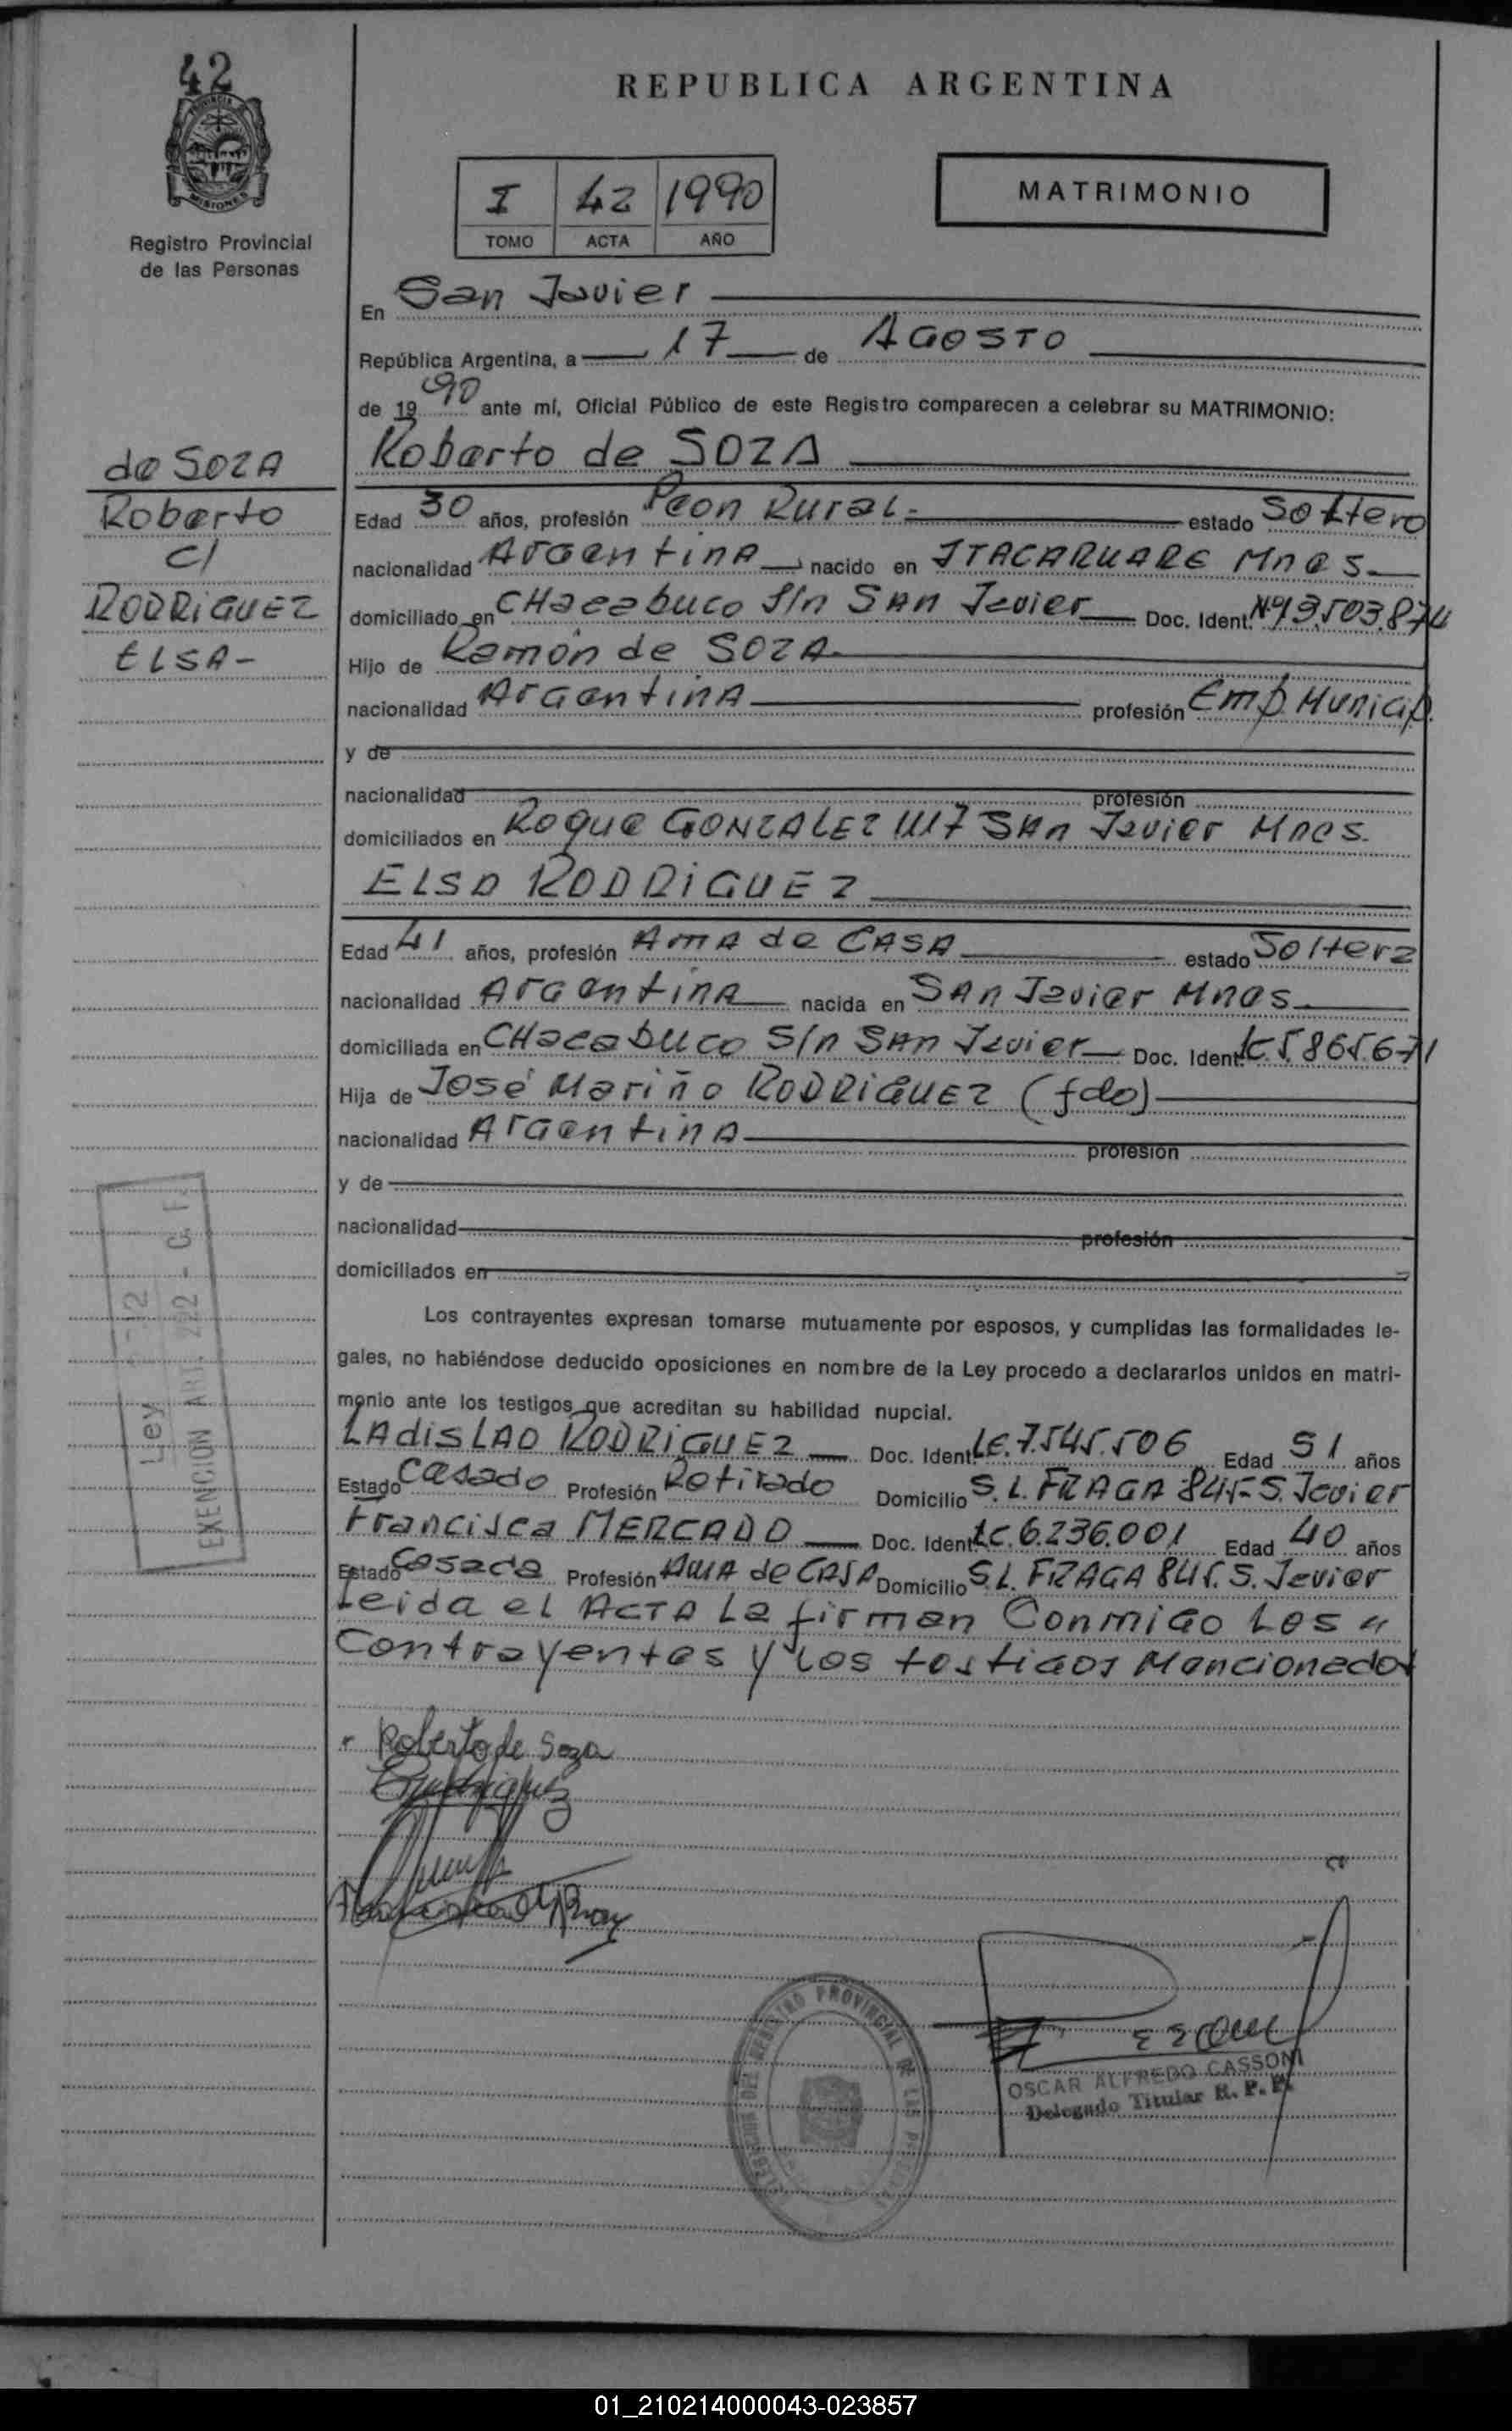 42
REPUBLICA ARGENTINA
MISIONES
Registro Provincial
de las Personas
I 42 1990
TOMO ACTA AÑO
MATRIMONIO
En San Javier
República Argentina, a 17 de AGOSTO
de 1990 ante mí, Oficial Público de este Registro comparecen a celebrar su MATRIMONIO:
de SOZA
Roberto
c/
RODRIGUEZ
ELSA-
Roberto de SOZA
Edad 30 años, profesión Peon Rural.- estado Soltero
nacionalidad ArGentinA nacido en ITACARUARE Mnes
domiciliado en CHacabuco S/n SAn Javier Doc. Ident. Nº13.503.874
Hijo de Ramón de SOZA
nacionalidad ArGentinA profesión Emp. Municip.
y de
nacionalidad profesión
domiciliados en Roque GONZALEZ 1117 SAn Javier Mnes.
ELSA RODRIGUEZ
Edad 41 años, profesión AmA de CASA estado Soltera
nacionalidad ArGentinA nacida en SAn Javier Mnes
domiciliada en CHacabuco S/n SAn Javier Doc. Ident. LC.5.865.671
Hija de José Mariño RODRIGUEZ (fdo)
nacionalidad ArGentinA profesión
y de
nacionalidad profesión
domiciliados en
Los contrayentes expresan tomarse mutuamente por esposos, y cumplidas las formalidades le-
gales, no habiéndose deducido oposiciones en nombre de la Ley procedo a declararlos unidos en matri-
monio ante los testigos que acreditan su habilidad nupcial.
LAdiSLAO RODRIGUEZ Doc. Ident. LE.7.545.506 Edad 51 años
Estado Casado Profesión Retirado Domicilio S.L. FRAGA 845-S. Javier
Francisca MERCADO Doc. Ident. LC.6.236.001 Edad 40 años
Estado Casada Profesión AMA de CASA Domicilio S.L. FRAGA 845. S. Javier
Leida el ACTA La firman ConmiGo Los "
Contrayentes y los testiGos Mencionados
Ley
EXENCION ART.
Roberto de Soza
OSCAR ALFREDO CASSONI
Delegado Titular R. P. P.
REGISTRO PROVINCIAL DE LAS
01_210214000043-023857